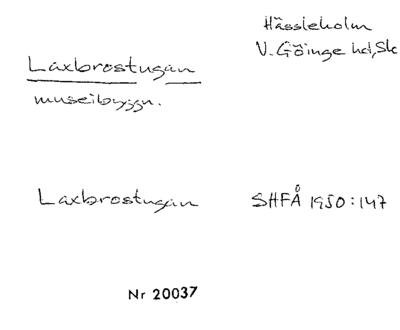 Hässleholm
V. Göinge hd, Sk
Laxbrostugan
museibyggn.
Laxbrostugan SHFÅ 1950:147
Nr 20037